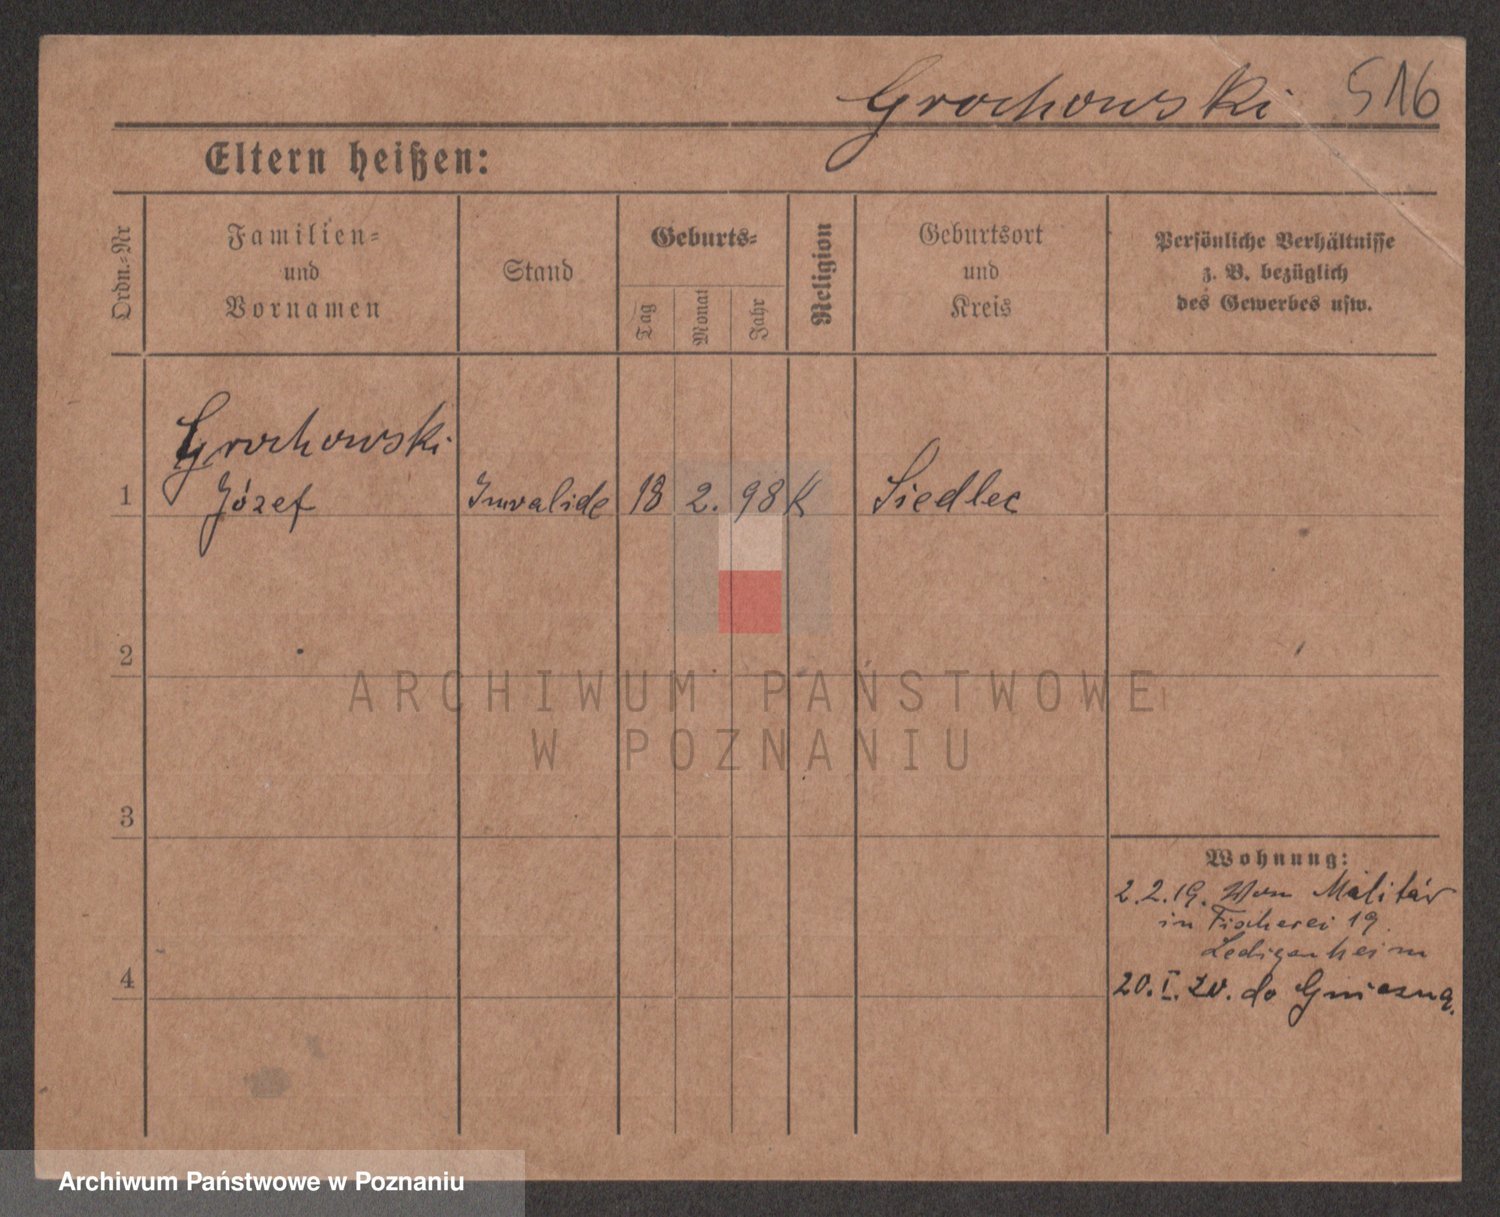 Grochowski 516
Eltern heißen:
Ordn.-Nr
Familien-
und
Vornamen
Stand
Geburts-
Tag
Monat
Jahr
Religion
Geburtsort
und
Kreis
Persönliche Verhältnisse
z. B. bezüglich
des Gewerbes usw.
Grochowski
1 Józef Invalide 18 2. 98 K Siedlec
2
ARCHIWUM PAŃSTWOWE
W POZNANIU
3
Wohnung:
2.2.19. Vom Militär
in Fischerei 19.
Ledigenheim
4
20. I. do Gniezna.
Archiwum Państwowe w Poznaniu